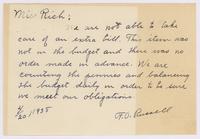 Miss Rich;
We are not able to take
care of an extra bill. This item was
not in the budget and there was no
order made in advance. We are
counting the pennies and balancing
the budget daily in order to be sure
we meet our obligations.
4/20/1935
F.O. Russell